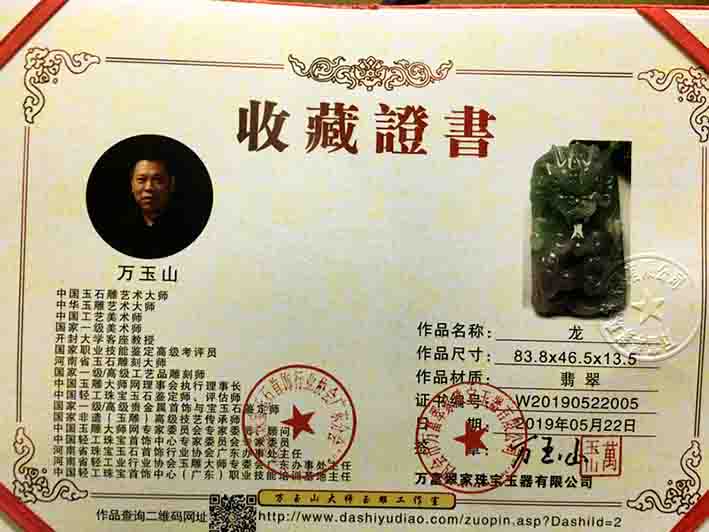 收藏證書
万玉山
中国玉石雕艺术大师
中华玉雕艺术大师
中国工艺美术师
国家一级美术师
开封大学客座教授
国家职业技能鉴定高级考评员
河南省玉石雕刻大师
国家一级/高级工艺品雕刻师
中国玉雕大师网理事会执行理事长
中国轻工珠宝玉石鉴定师、评估师
国家一级/高级贵金属首饰与宝玉石鉴定师
国家非遗（玉雕）高级技艺传承师
中国玉雕大师网专家委员会专家委员、顾问
中国轻工珠宝首饰中心专家委员会专家委员
河南省珠宝玉石首饰行业协会广东办事处主任
河南省轻工业行业协会玉雕大师专业委会广东办事处主任
中国轻工珠宝首饰中心（广东）职业技能培训基地主任
作品名称: 龙
作品尺寸: 83.8x46.5x13.5
作品材质: 翡翠
证书编号: W20190522005
日期: 2019年05月22日
签章: 万玉山
萬玉山
万富翠家珠宝玉器有限公司
万玉山大师玉雕工作室
作品查询二维码网址
http://www.dashiyudiao.com/zuopin.asp?DashiId=2